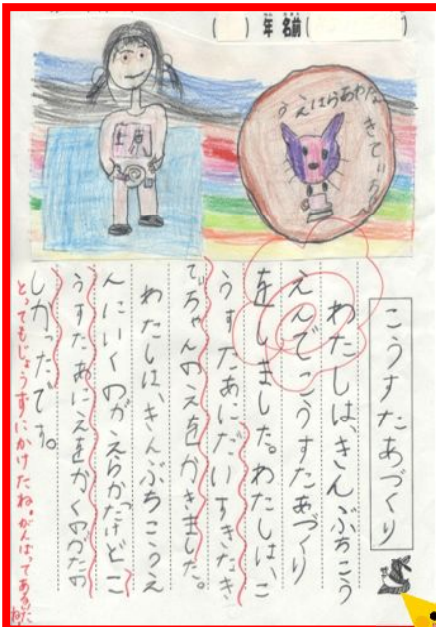 ( ) 年 名前( )
うえはらあやな
きてぃ
上原
こうすたあづくり
わたしは、きんぶちこう
えんでこうすたあづくり
をしました。わたしは、こ
うすたあにだいすきなき
てぃちゃんのえをかきました。
わたしは、きんぶちこうえ
んにいくのがえらかったけどこ
うすたあにえをかくのがたの
しかったです。
とってもじょうずにかけたね。がんばってあるいたね